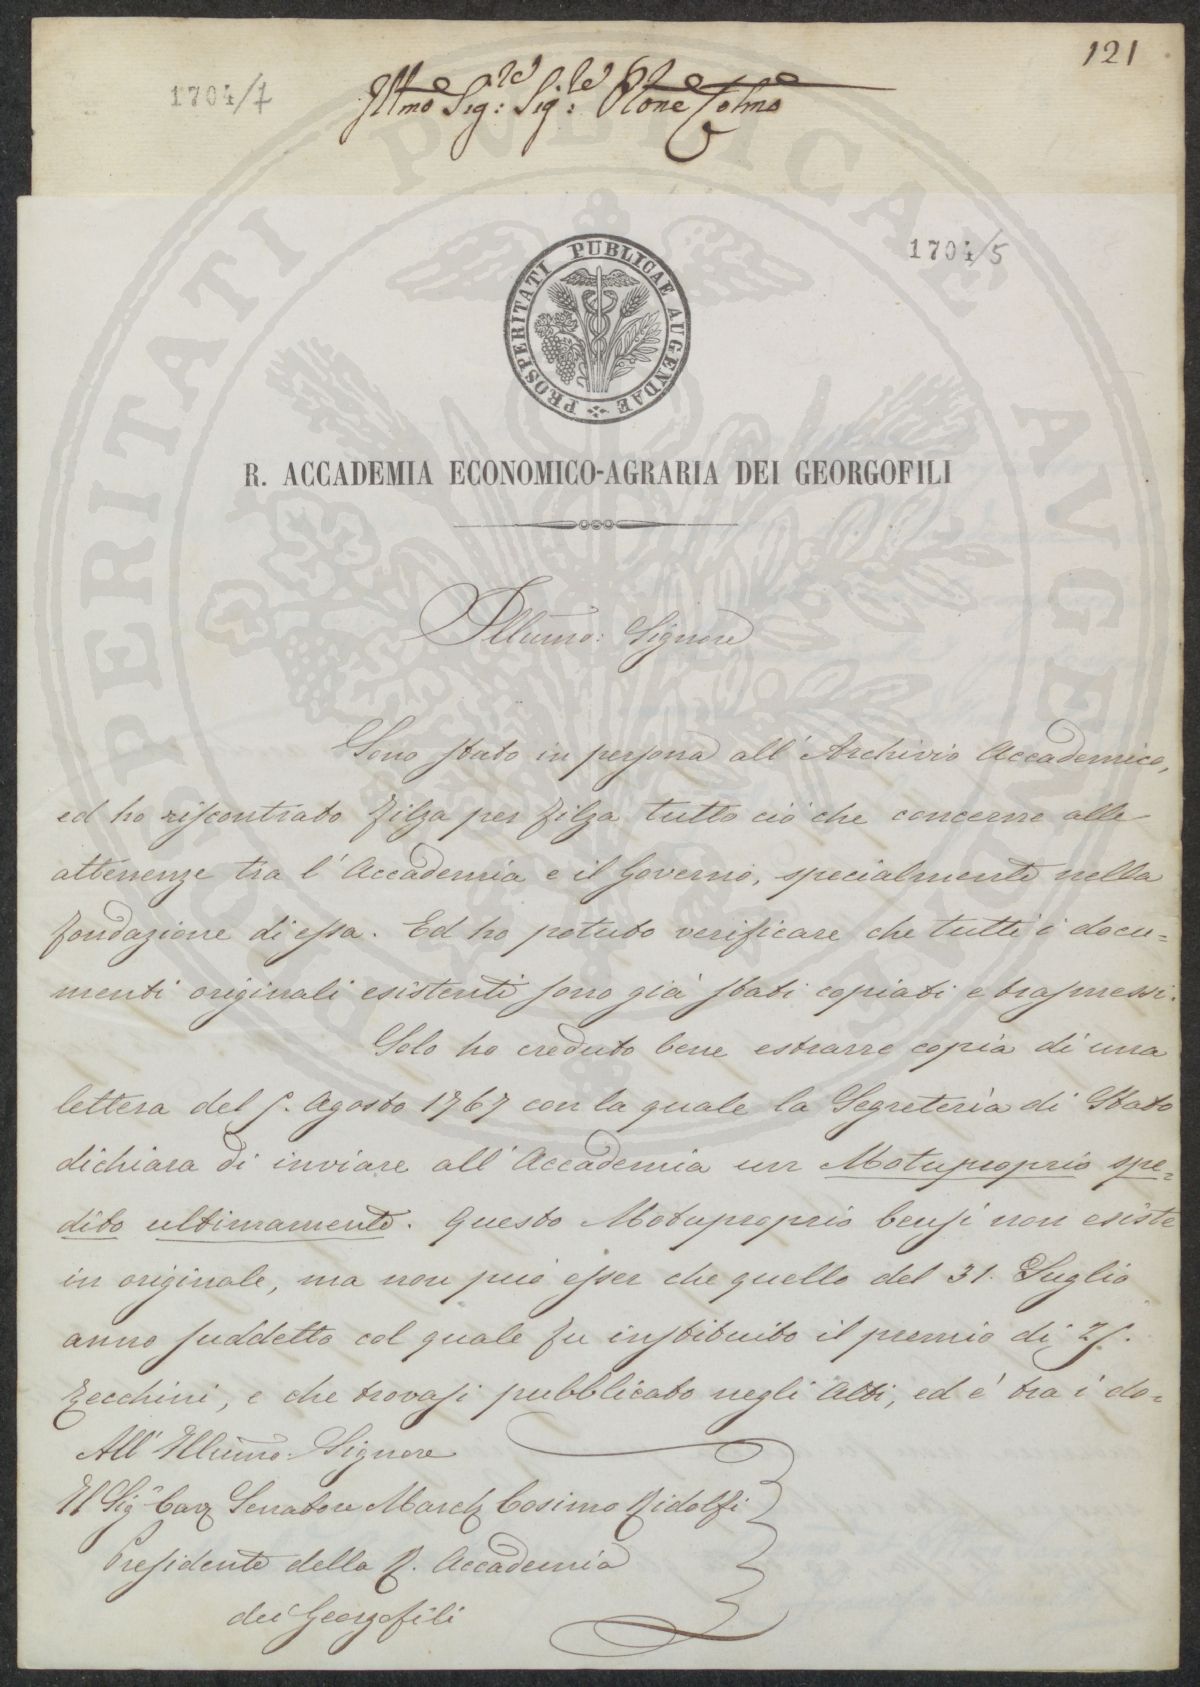 121
1704/4
Illmo Sig: Sig: Płone Colmo
1704/5
PROSPERITATI PUBLICAE AUGENDAE
R. ACCADEMIA ECONOMICO-AGRARIA DEI GEORGOFILI
Illumo: Signore
Sono stato in persona all' Archivio Accademico,
ed ho riscontrato filza per filza tutto ciò che concerne alle
attenenze tra l' Accademia e il Governo, specialmente nella
fondazione di essa. Ed ho potuto verificare che tutti i docu=
menti originali esistenti sono già stati copiati e trasmessi.
Solo ho creduto bene estrarre copia di una
lettera del 5. Agosto 1767 con la quale la Segreteria di Stato
dichiara di inviare all' Accademia un Motuproprio spe=
dito ultimamente. Questo Motuproprio bensì non esiste
in originale, ma non può esser che quello del 31. Luglio
anno suddetto col quale fu instituito il premio di 25.
Zecchini, e che trovasi pubblicato negli Atti, ed è tra i do=
All' Illumo. Signore
Il Sigr. Cav Senatore March Cosimo Ridolfi
Presidente della R. Accademia
dei Georgofili
PROSPERITATI PUBLICAE AVGENDAE